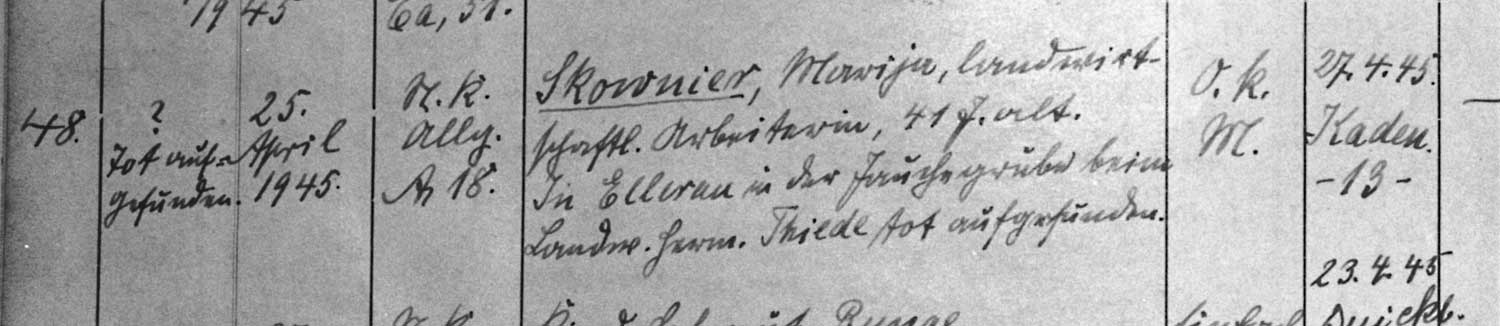 1945
6a, 31.
48.
?
Tot auf-
gefunden.
25.
April
1945.
N. K.
Allg.
A 18.
Skownier, Marija, landwirt-
schaftl. Arbeiterin, 41 J. alt.
In Ellerau in der Jauchegrube beim
Landw. Herm. Thiede tot aufgefunden.
O. K.
M.
27.4.45.
Kaden.
-13-
23.4.45
N. K.
Runge
Quickb.